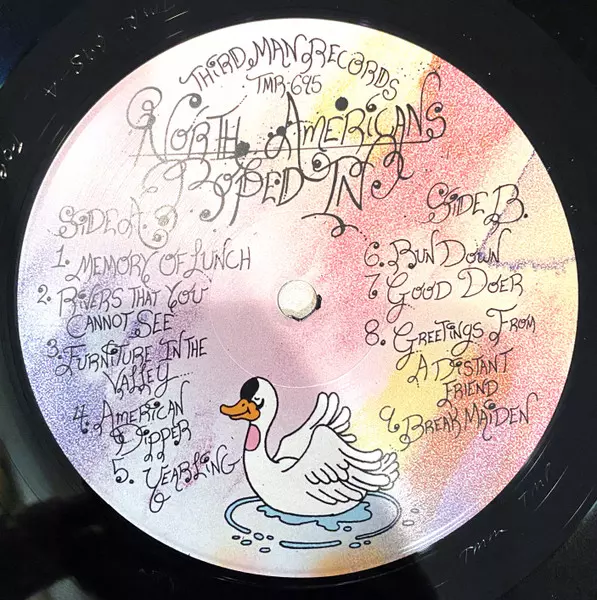 THIRD MAN RECORDS
TMR-695
NORTH AMERICANS
ROPED IN
SIDE A.
1. MEMORY OF LUNCH
2. RIVERS THAT YOU
CANNOT SEE
3. FURNITURE IN THE
VALLEY
4. AMERICAN
DIPPER
5. YEARLING
SIDE B.
6. RUN DOWN
7. GOOD DOER
8. GREETINGS FROM
A DISTANT
FRIEND
9. BREAK MAIDEN